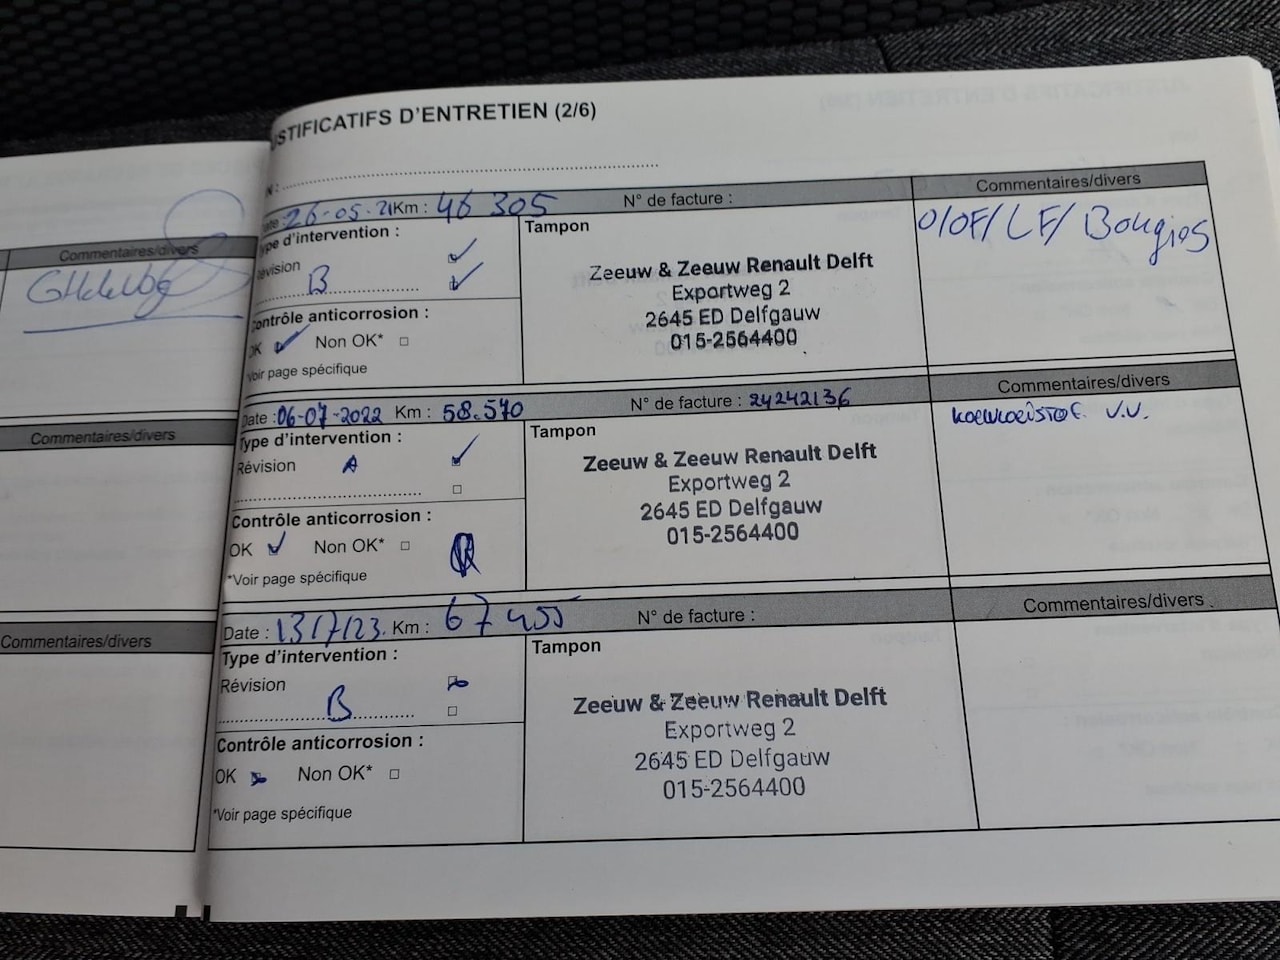 Commentaires/divers
Commentaires/divers
Commentaires/divers
USTIFICATIFS D'ENTRETIEN (2/6)
N :
Date : 26-05-21 Km : 46 305 N° de facture : Commentaires/divers
ype d'intervention : Tampon O/OF/LF/ Bougies
évision
B
Contrôle anticorrosion :
OK Non OK* □
*Voir page spécifique
Zeeuw & Zeeuw Renault Delft
Exportweg 2
2645 ED Delfgauw
015-2564400
Date : 06-07-2022 Km : 58.570 N° de facture : 24242136 Commentaires/divers
Type d'intervention : Tampon koelvloeistof. V.V.
Révision A
□
Contrôle anticorrosion :
OK Non OK* □
*Voir page spécifique
Zeeuw & Zeeuw Renault Delft
Exportweg 2
2645 ED Delfgauw
015-2564400
Date : 13/7/23. Km : 67 455 N° de facture : Commentaires/divers
Type d'intervention : Tampon
Révision
B □
Contrôle anticorrosion :
OK Non OK* □
*Voir page spécifique
Zeeuw & Zeeuw Renault Delft
Exportweg 2
2645 ED Delfgauw
015-2564400